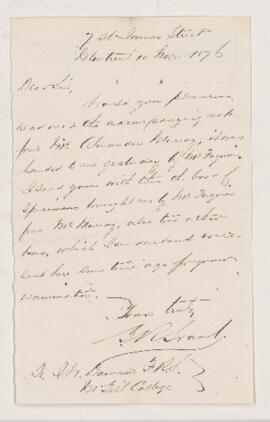 Street
Montreal 10 Nov. 1876
Dear Sir,
Would you please
read over the accompanying note
from Mr Alexander Murray, it was
handed to me yesterday by Mr Ferguson
I send you with this the box of
Specimens brought me by Mr Ferguson
from Mr Murray, also two other
boxes, which I understand were
sent here some time ago for your
examination.
Yours truly
R. Grant
Dr J. W. Dawson F.R.S.
McGill College